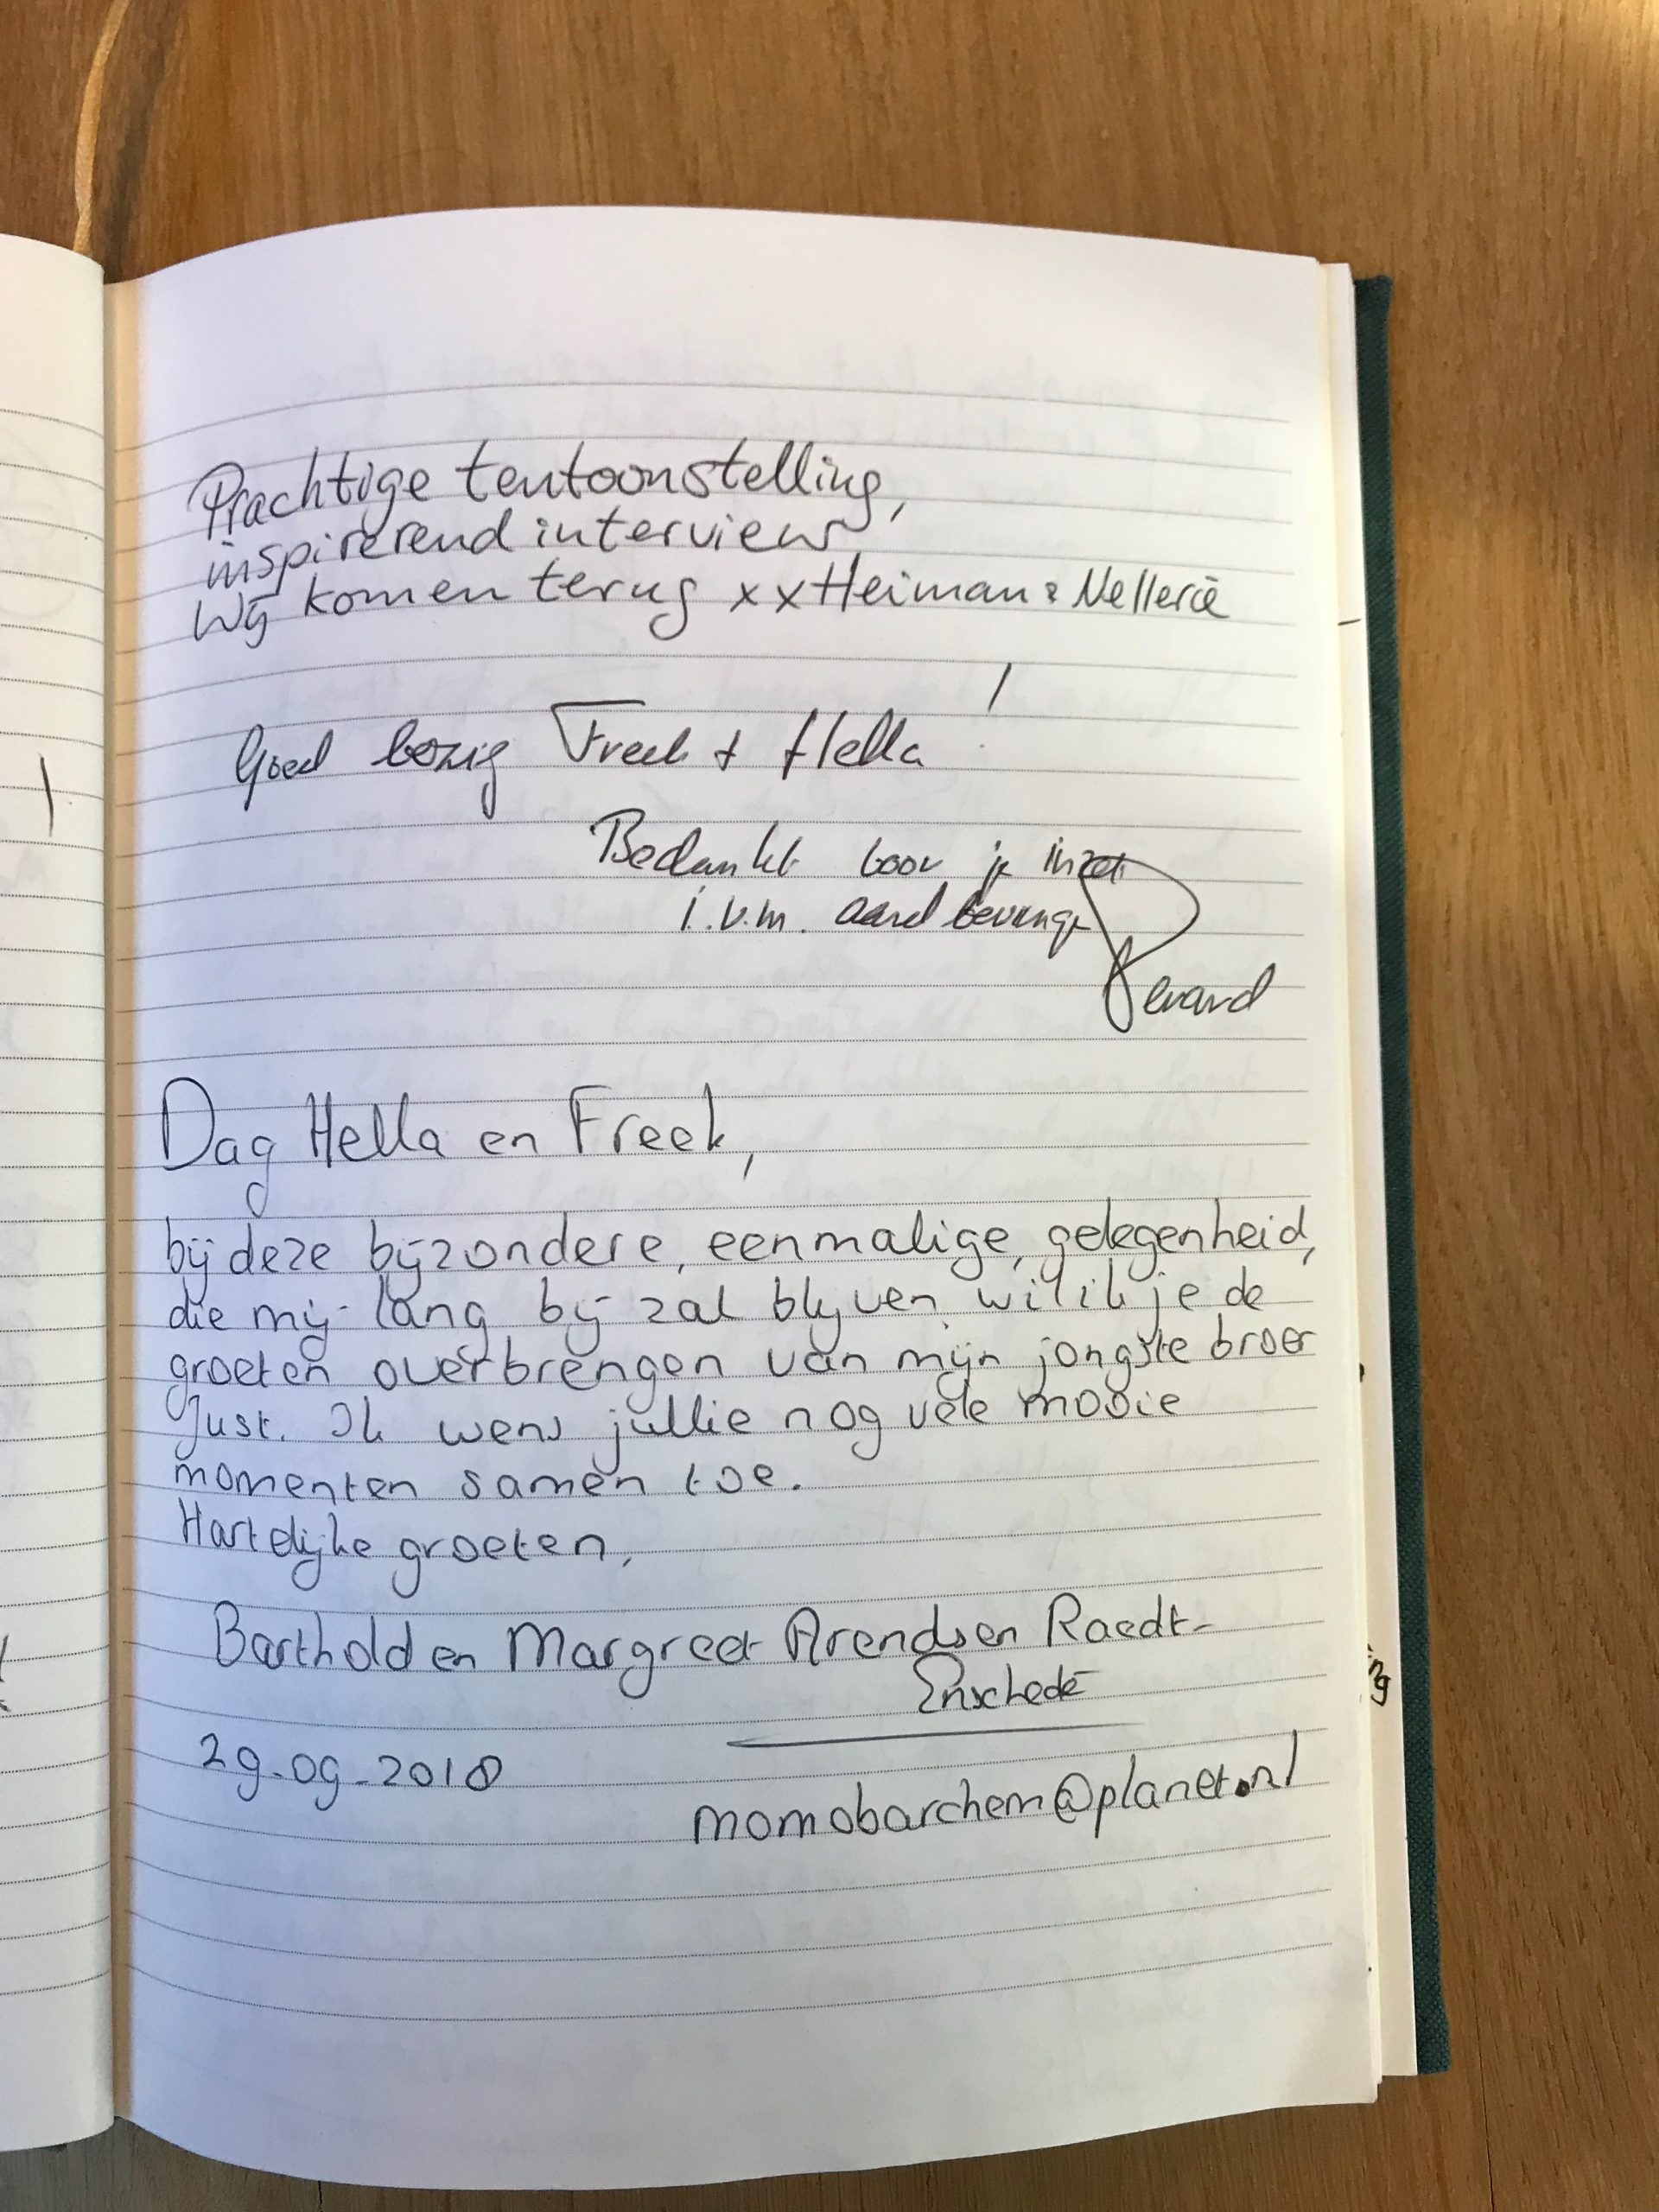 Prachtige tentoonstelling,
inspirerend interview
Wij komen terug xx Heiman & Nellerie
Goed bezig Freek + Hella !
Bedankt voor je inzet
i.v.m. aardbevingen
Dag Hella en Freek,
bij deze bijzondere, eenmalige, gelegenheid,
die mij lang bij zal blijven, wil ik je de
groeten overbrengen van mijn jongste broer
Just. Ik wens jullie nog vele mooie
momenten samen toe.
Hartelijke groeten,
Barthold en Margreet Arendsen Raedt-
Enschede
29-09-2018
momobarchem@planet.nl